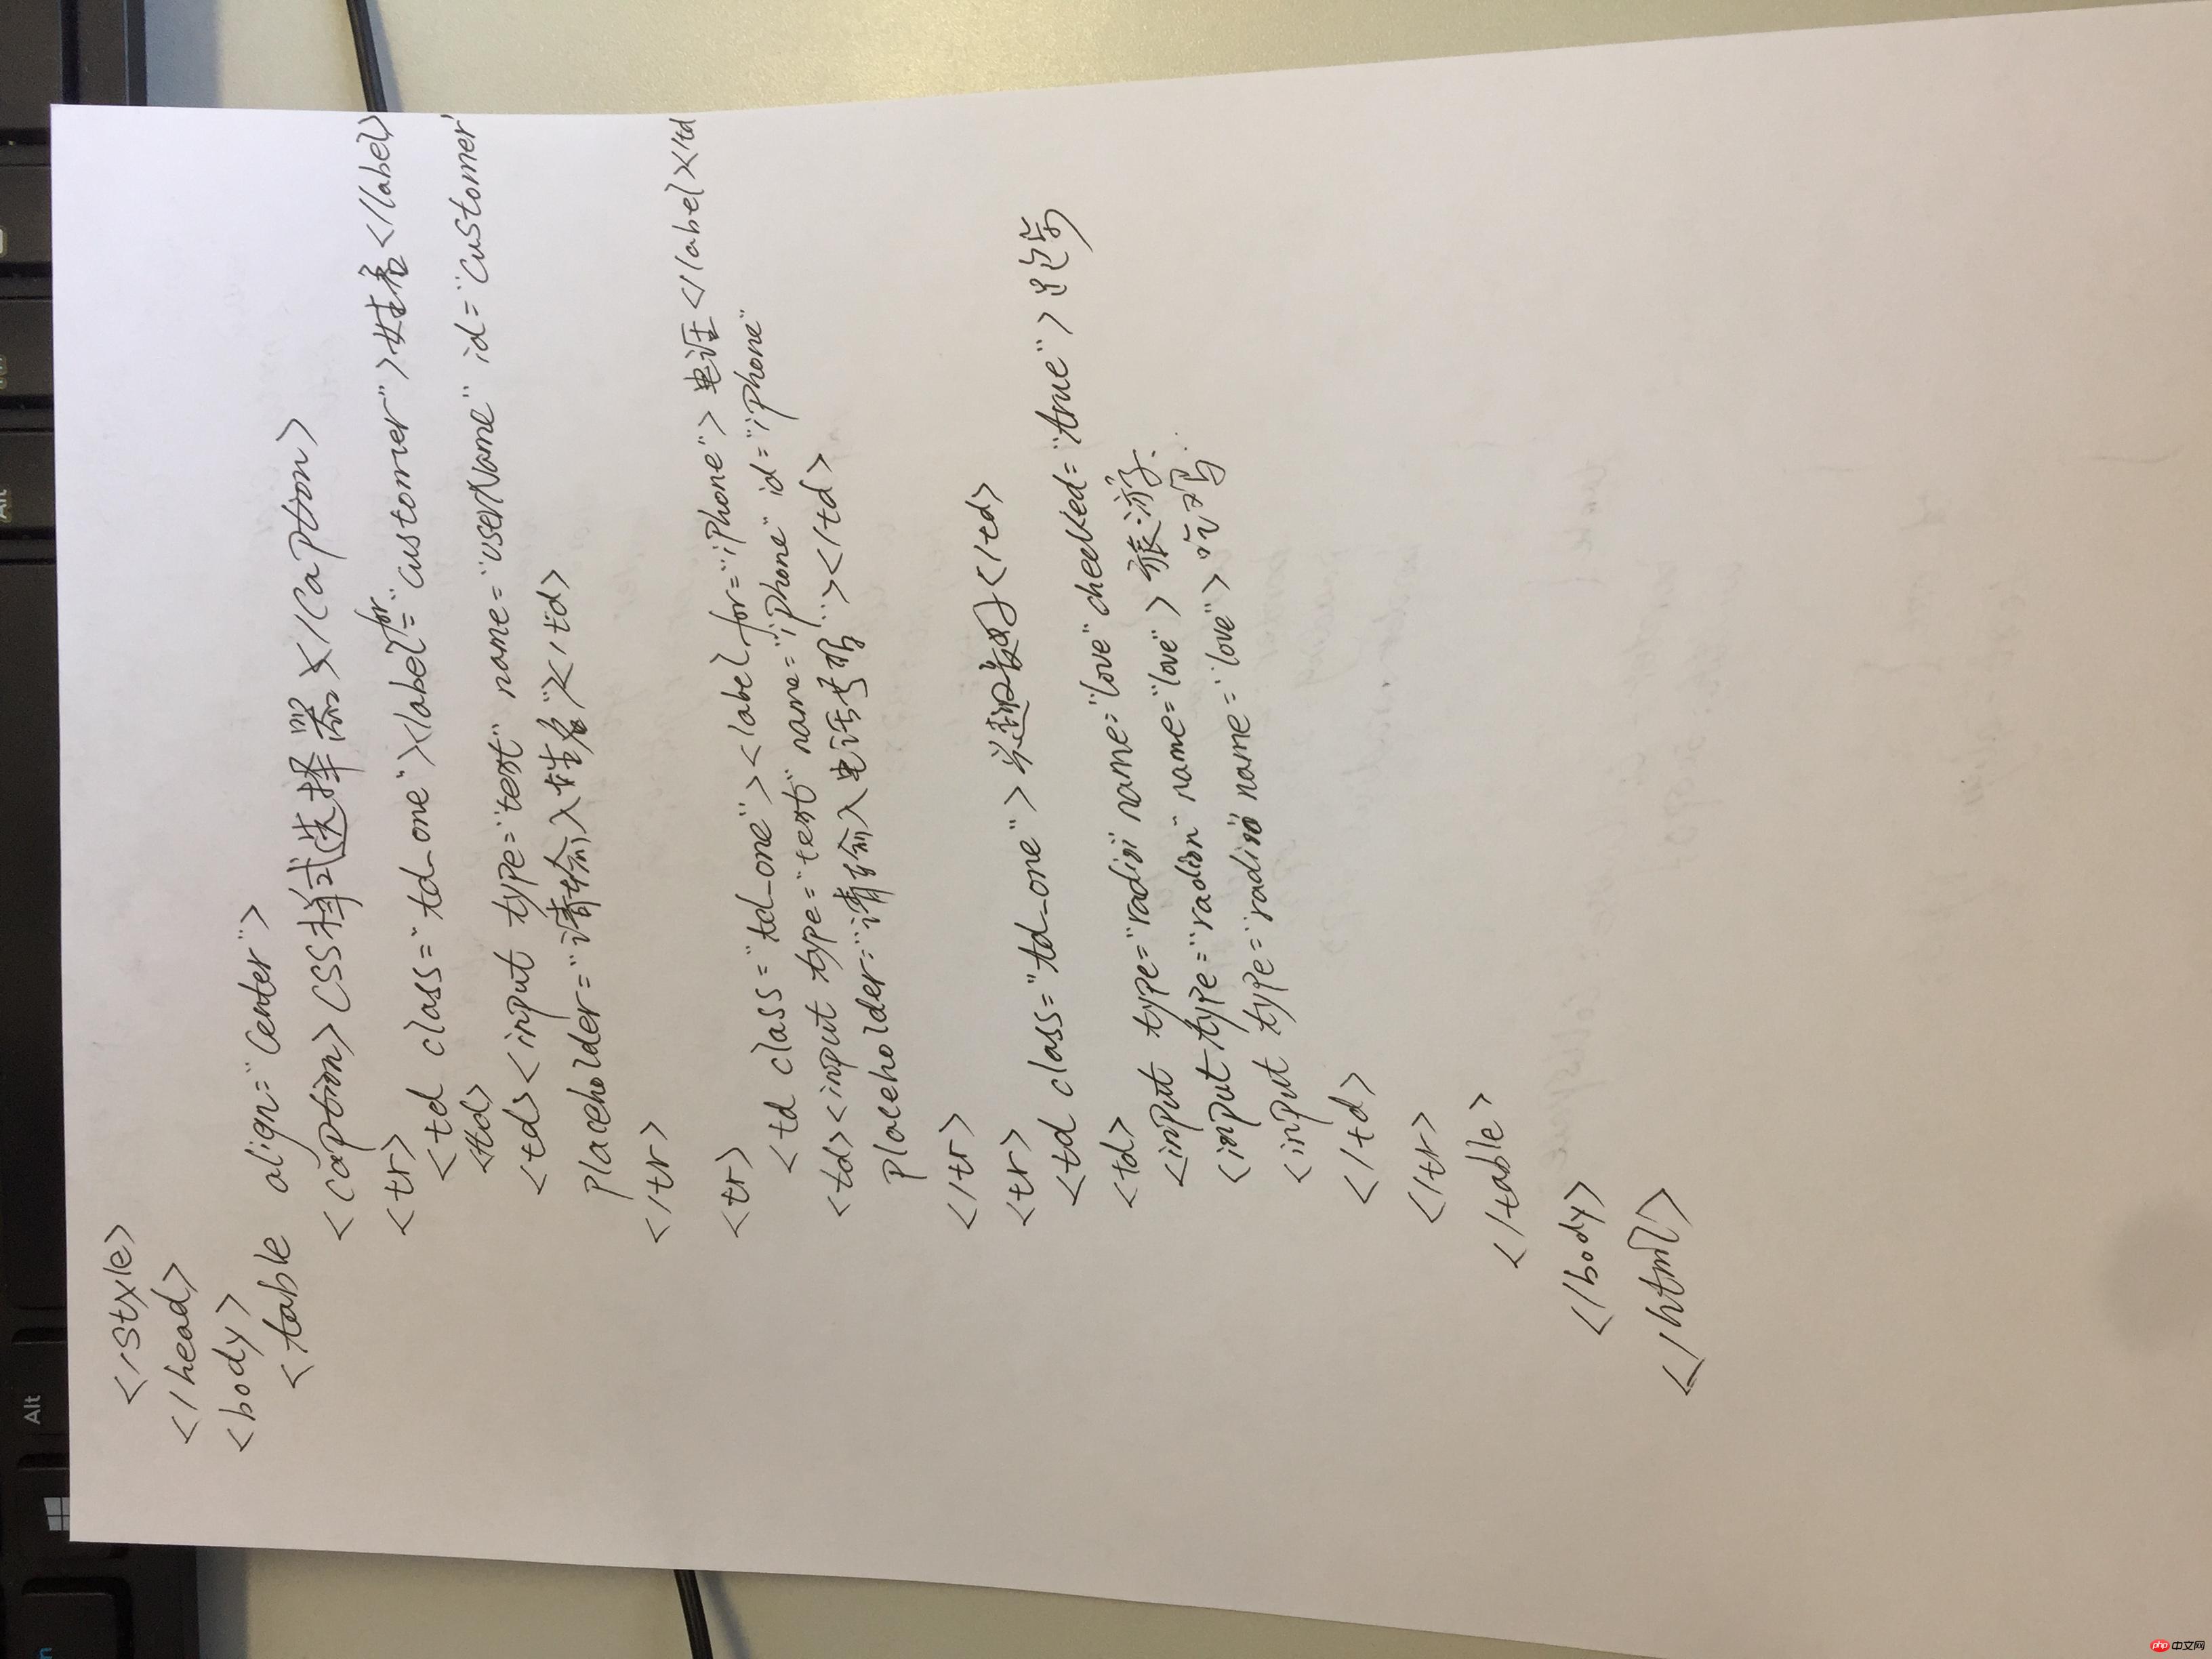 </style>
</head>
<body>
<table align="center">
<caption>CSS样式选择器</caption>
<tr>
<td class="td_one"><label for="customer">姓名</label>
</td>
<td><input type="text" name="userName" id="customer"
placeholder="请输入姓名"></td>
</tr>
<tr>
<td class="td_one"><label for="iphone">电话</label></td
<td><input type="text" name="iphone" id="iphone"
placeholder="请输入电话号码"></td>
</tr>
<tr>
<td class="td_one">兴趣爱好</td>
<td>
<input type="radioi name="love" cheelked="true">
<input type="radion" name="love">旅游
<input type="radio" name="love">吃喝
</td>
</tr>
</table>
</body>
</html>
Alt
Alt
php 中文网